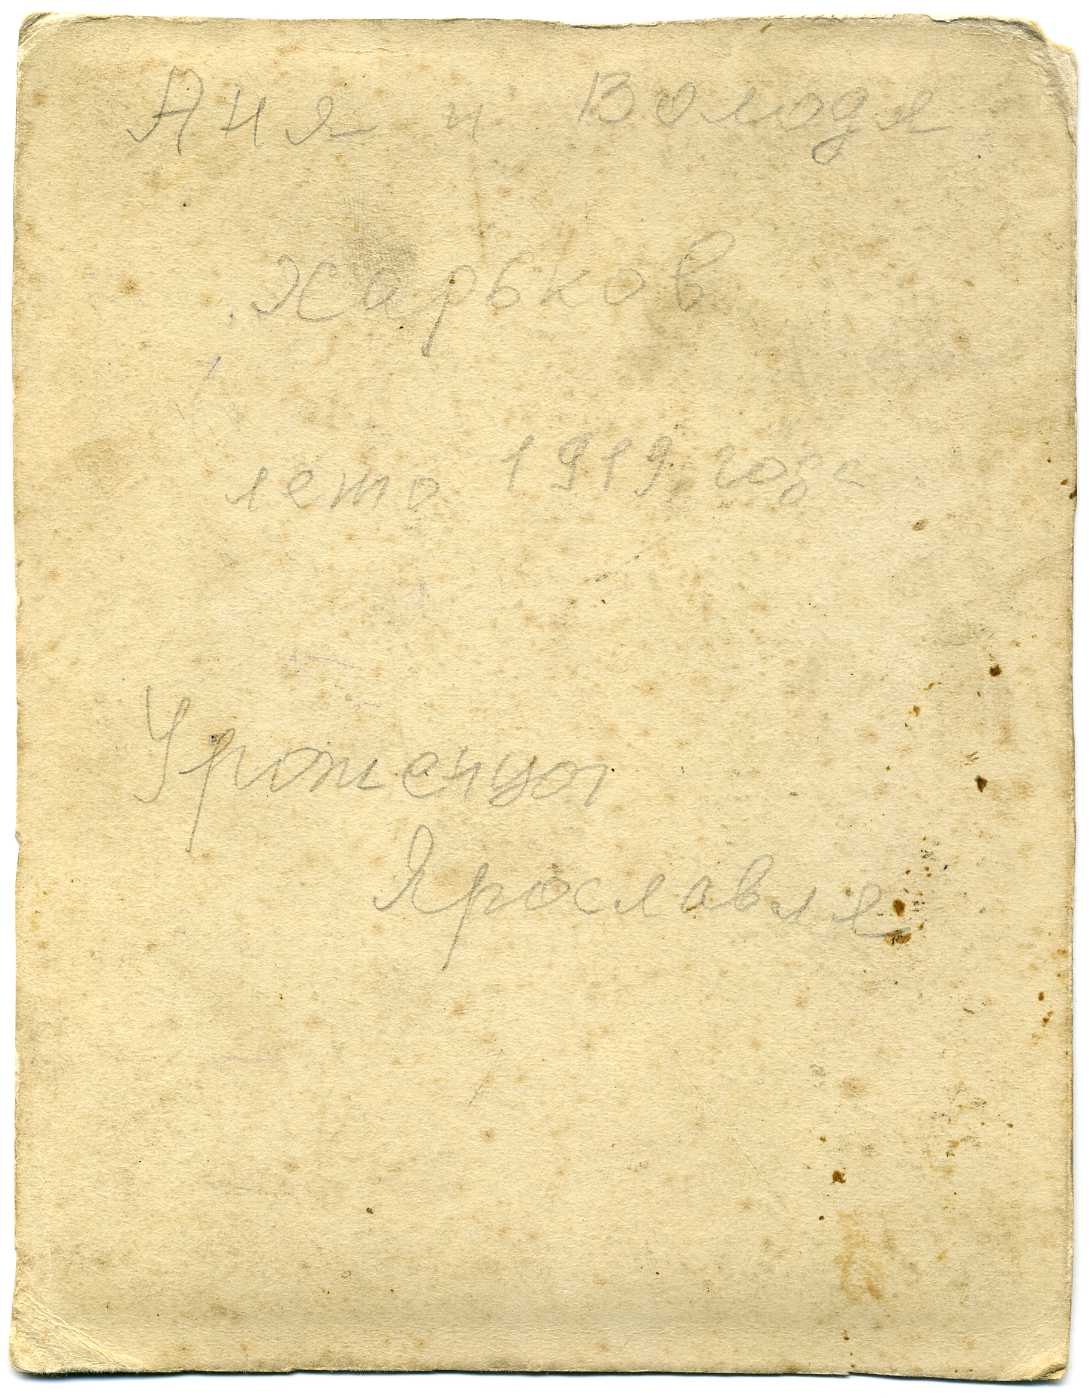 Аня и Володя
Харьков
лето 1919 года
Уроженцы
Ярославля